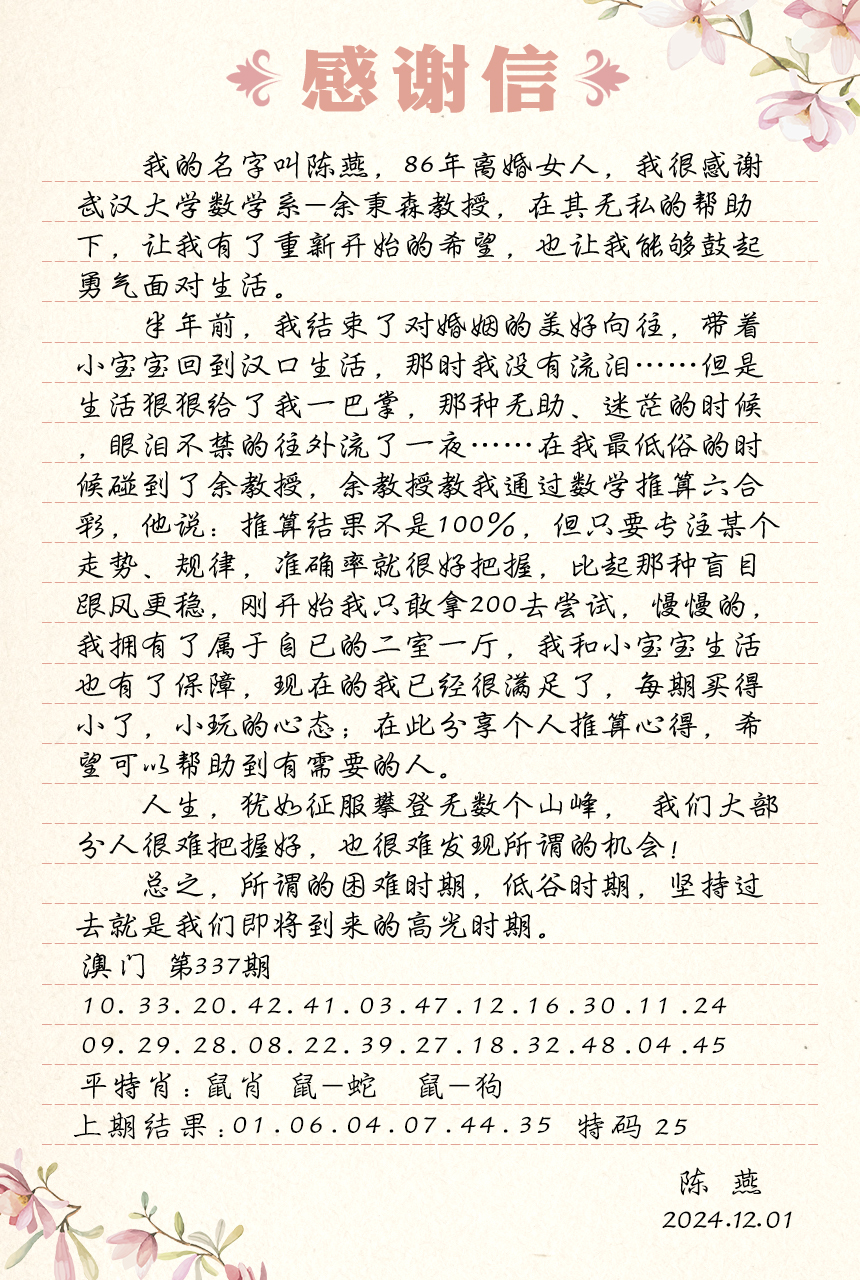 感谢信
我的名字叫陈燕，86年离婚女人，我很感谢
武汉大学数学系—余秉森教授，在其无私的帮助
下，让我有了重新开始的希望，也让我能够鼓起
勇气面对生活。
半年前，我结束了对婚姻的美好向往，带着
小宝宝回到汉口生活，那时我没有流泪……但是
生活狠狠给了我一巴掌，那种无助、迷茫的时候
，眼泪不禁的往外流了一夜……在我最低俗的时
候碰到了余教授，余教授教我通过数学推算六合
彩，他说：推算结果不是100%，但只要专注某个
走势、规律，准确率就很好把握，比起那种盲目
跟风更稳，刚开始我只敢拿200去尝试，慢慢的，
我拥有了属于自已的二室一厅，我和小宝宝生活
也有了保障，现在的我已经很满足了，每期买得
小了，小玩的心态；在此分享个人推算心得，希
望可以帮助到有需要的人。
人生，犹如征服攀登无数个山峰， 我们大部
分人很难把握好，也很难发现所谓的机会！
总之，所谓的困难时期，低谷时期，坚持过
去就是我们即将到来的高光时期。
澳门 第337期
10.33.20.42.41.03.47.12.16.30.11.24
09.29.28.08.22.39.27.18.32.48.04.45
平特肖：鼠肖 鼠—蛇 鼠—狗
上期结果：01.06.04.07.44.35 特码 25
陈 燕
2024.12.01